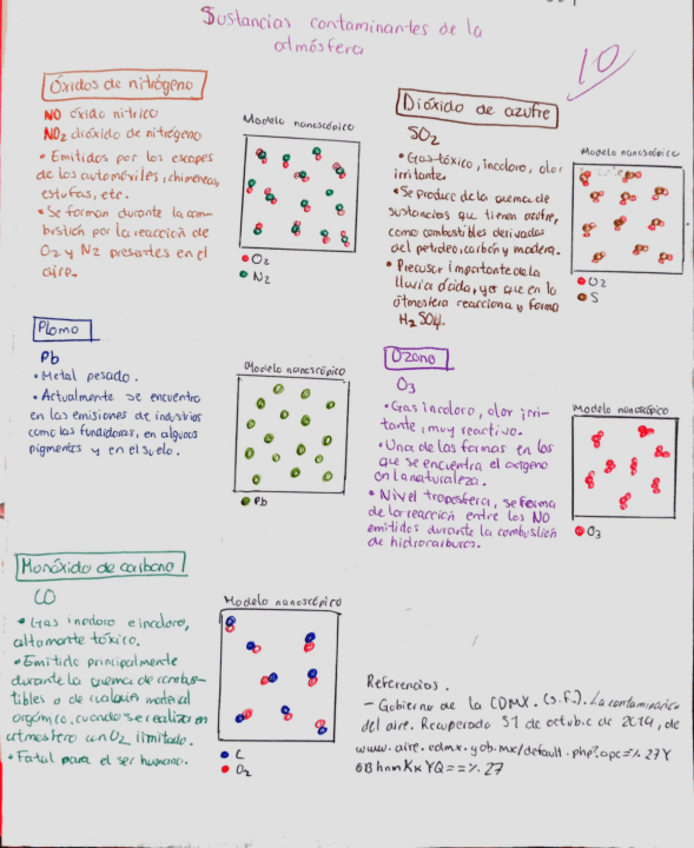 Sustancias contaminantes de la
atmósfera
10
Óxidos de nitrógeno
NO óxido nítrico
NO2 dióxido de nitrógeno
• Emitidos por los escapes
de los automóviles, chimeneas,
estufas, etc.
• Se forman durante la com-
bustión por la reacción de
O2 y N2 presentes en el
aire.
Modelo nanoscópico
O2
N2
Dióxido de azufre
SO2
• Gas tóxico, incoloro, olor
irritante.
• Se produce de la quema de
sustancias que tienen azufre,
como combustibles derivados
del petróleo, carbón y madera.
• Precusor importante de la
lluvia ácida, ya que en la
atmosfera reacciona y forma
H2SO4.
Modelo nanoscópico
O2
S
Plomo
Pb
• Metal pesado.
• Actualmente se encuentra
en las emisiones de industrias
como las fundidoras, en algunos
pigmentos y en el suelo.
Modelo nanoscópico
Pb
Ozono
O3
• Gas incoloro, olor irri-
tante, muy reactivo.
• Una de las formas en las
que se encuentra el oxígeno
en la naturaleza.
• Nivel troposfera, se forma
de la reacción entre los NO
emitidos durante la combustión
de hidrocarburos.
Modelo nanoscópico
O3
Monóxido de carbono
CO
• Gas inodoro e incoloro,
altamente tóxico.
• Emitido principalmente
durante la quema de combus-
tibles o de cualquier material
orgánico, cuando se realiza en
atmosfera con O2 limitado.
• Fatal para el ser humano.
Modelo nanoscópico
C
O2
Referencias.
- Gobierno de la CDMX. (s.f.). La contaminación
del aire. Recuperado 31 de octubre de 2019, de
www.aire.cdmx.gob.mx/default.php?opc=%27Y
6BhnmKkYQ==%27